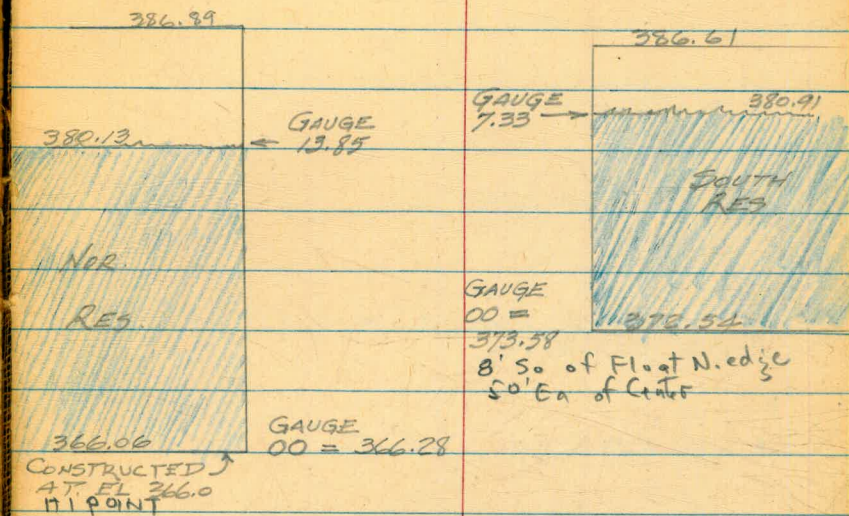 386.89
380.13
GAUGE
13.85
NOR.
RES.
366.06
GAUGE
00 = 366.28
CONSTRUCTED
AT EL 366.0
HI POINT
386.61
GAUGE
7.33
380.91
SOUTH
RES
GAUGE
00 =
373.58
8' So of Float N. edge
50' Ea of Center